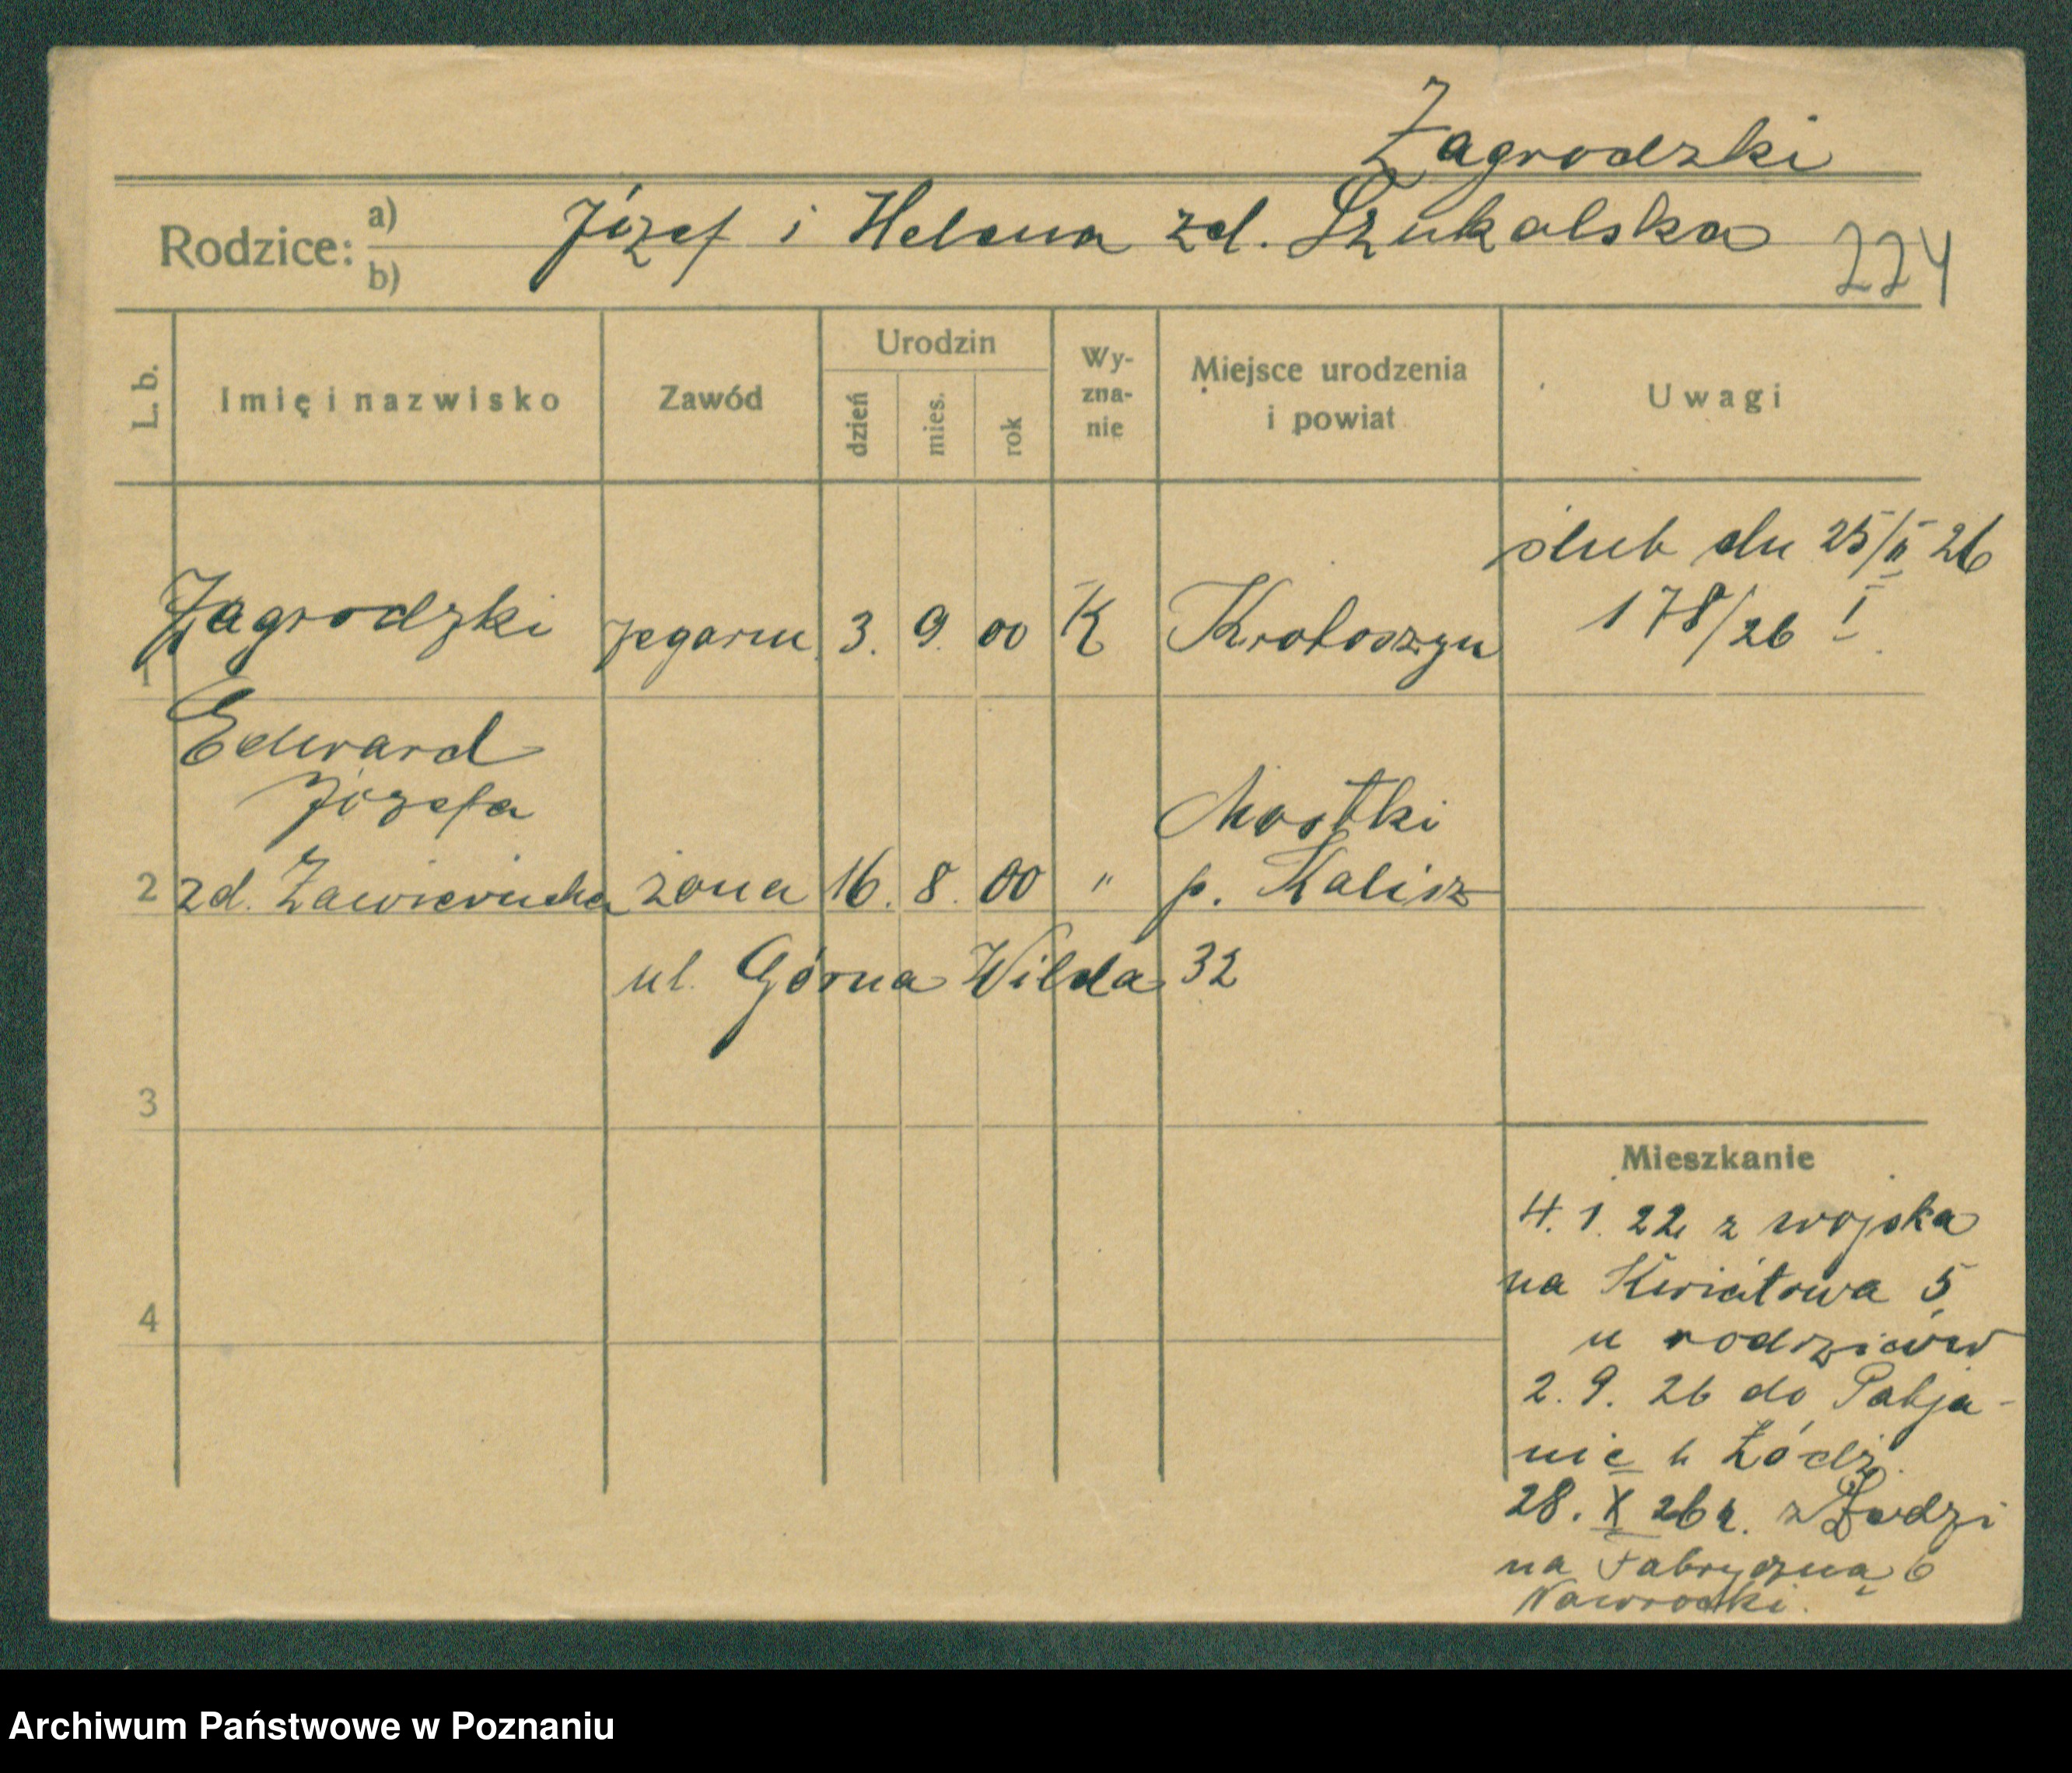 Zagrodzki
Rodzice: a) b) Józef i Helena zd. Szukalska
224
L. b. Imię i nazwisko Zawód Urodzin dzień mies. rok Wy-zna-nie Miejsce urodzenia i powiat Uwagi
ślub dn 25/II 26
1 Zagrodzki zegarm. 3. 9. 00 K Krotoszyn 178/26 I
Edward
Józefa Mostki
2 zd. Zawierucha żona 16. 8. 00 " p. Kalisz
ul. Górna Wilda 32
3
Mieszkanie
4. 1. 22 z wojska
na Kwiatowa 5
4
u rodziców
2. 9. 26 do Pabja-
nic k Łódź
28. X 26 r. z Łodzi
na Fabryczną 6
Nawrocki.
Archiwum Państwowe w Poznaniu